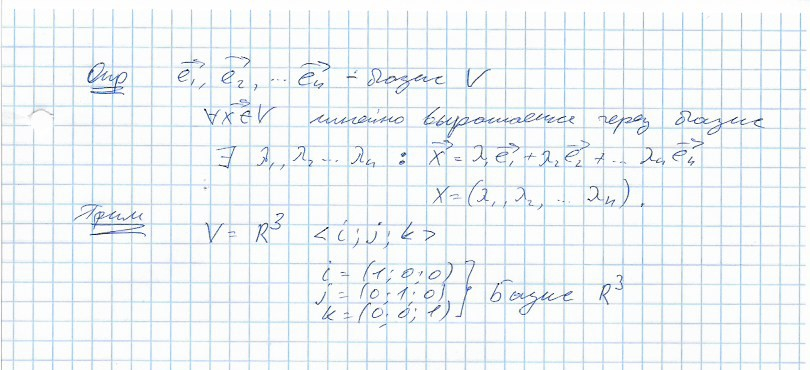 Опр e⃗₁, e⃗₂, ... e⃗ₙ - базис V
∀x⃗∈V линейно выражается через базис
∃ λ₁, λ₂ ... λₙ : x⃗ = λ₁e⃗₁ + λ₂e⃗₂ + ... λₙe⃗ₙ
x = (λ₁, λ₂, ... λₙ).
Прим V = R³ <i; j; k>
i = (1; 0; 0)
j = (0; 1; 0) } Базис R³
k = (0; 0; 1)